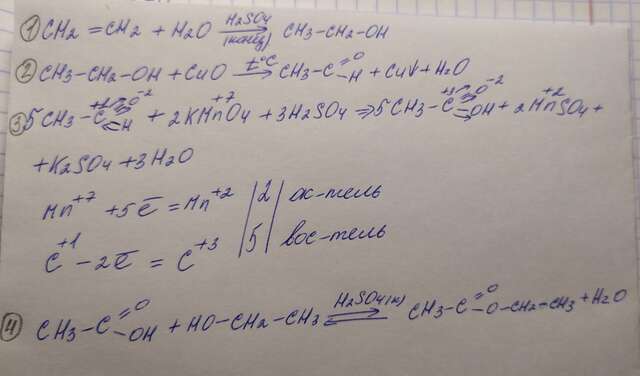 1) CH2=CH2 + H2O H2SO4 (конц) → CH3-CH2-OH
2) CH3-CH2-OH + CuO t°C → CH3-C=O-H + Cu↓ + H2O
3) 5CH3-C+1=O-2-H + 2KMn+7O4 + 3H2SO4 ⇒ 5CH3-C+3=O-2-OH + 2Mn+2SO4 +
+ K2SO4 + 3H2O
Mn+7 + 5e̅ = Mn+2 | 2 | ок-тель
C+1 - 2e̅ = C+3 | 5 | вос-тель
4) CH3-C=O-OH + HO-CH2-CH3 H2SO4(к) ⇌ CH3-C=O-O-CH2-CH3 + H2O